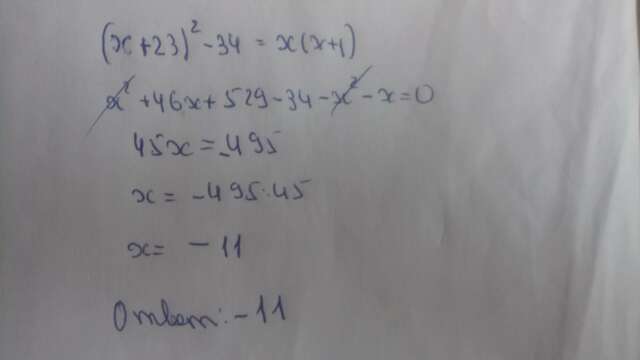 (x+23)²-34 = x(x+1)
x²+46x+529-34-x²-x=0
45x=-495
x= -495:45
x= -11
Ответ: -11